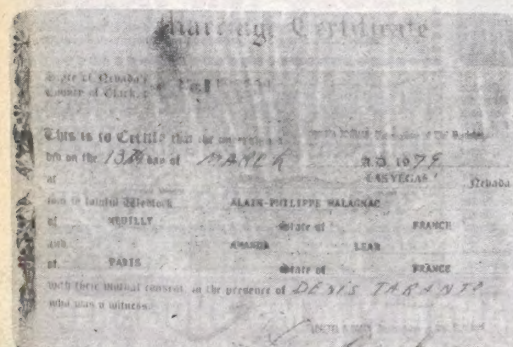 Marriage Certificate
State of Nevada
County of Clark
No.
This is to Certify that the undersigned
did on the 13th day of MARCH A.D. 1979
at LAS VEGAS, Nevada
join in lawful Wedlock ALAIN-PHILIPPE MALAGNAC
of NEUILLY State of FRANCE
and AMANDA LEAR
of PARIS State of FRANCE
with their mutual consent, in the presence of DENIS TARANTO
who was a witness.